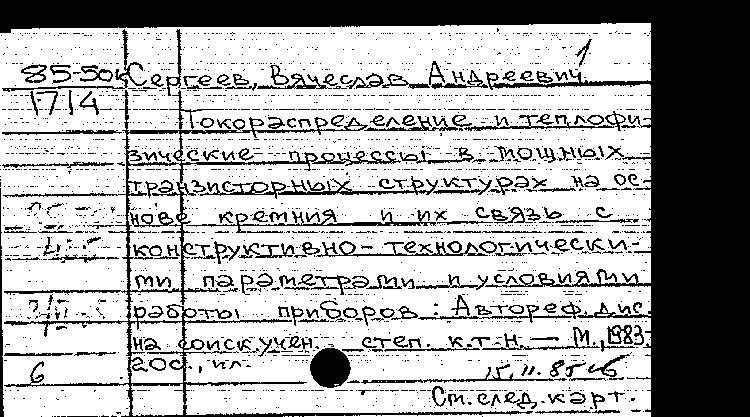 1
85-50к Сергеев, Вячеслав Андреевич
1714
Токораспределение и теплофи-
зические процессы в мощных
транзисторных структурах на ос-
нове кремния и их связь с
конструктивно-технологически-
ми параметрами и условиями
работы приборов: Автореф. дис.
на соиск. учен. степ. к.т.н. — М., 1983.
6 20с., ил.
15.11.85
См. след. карт.